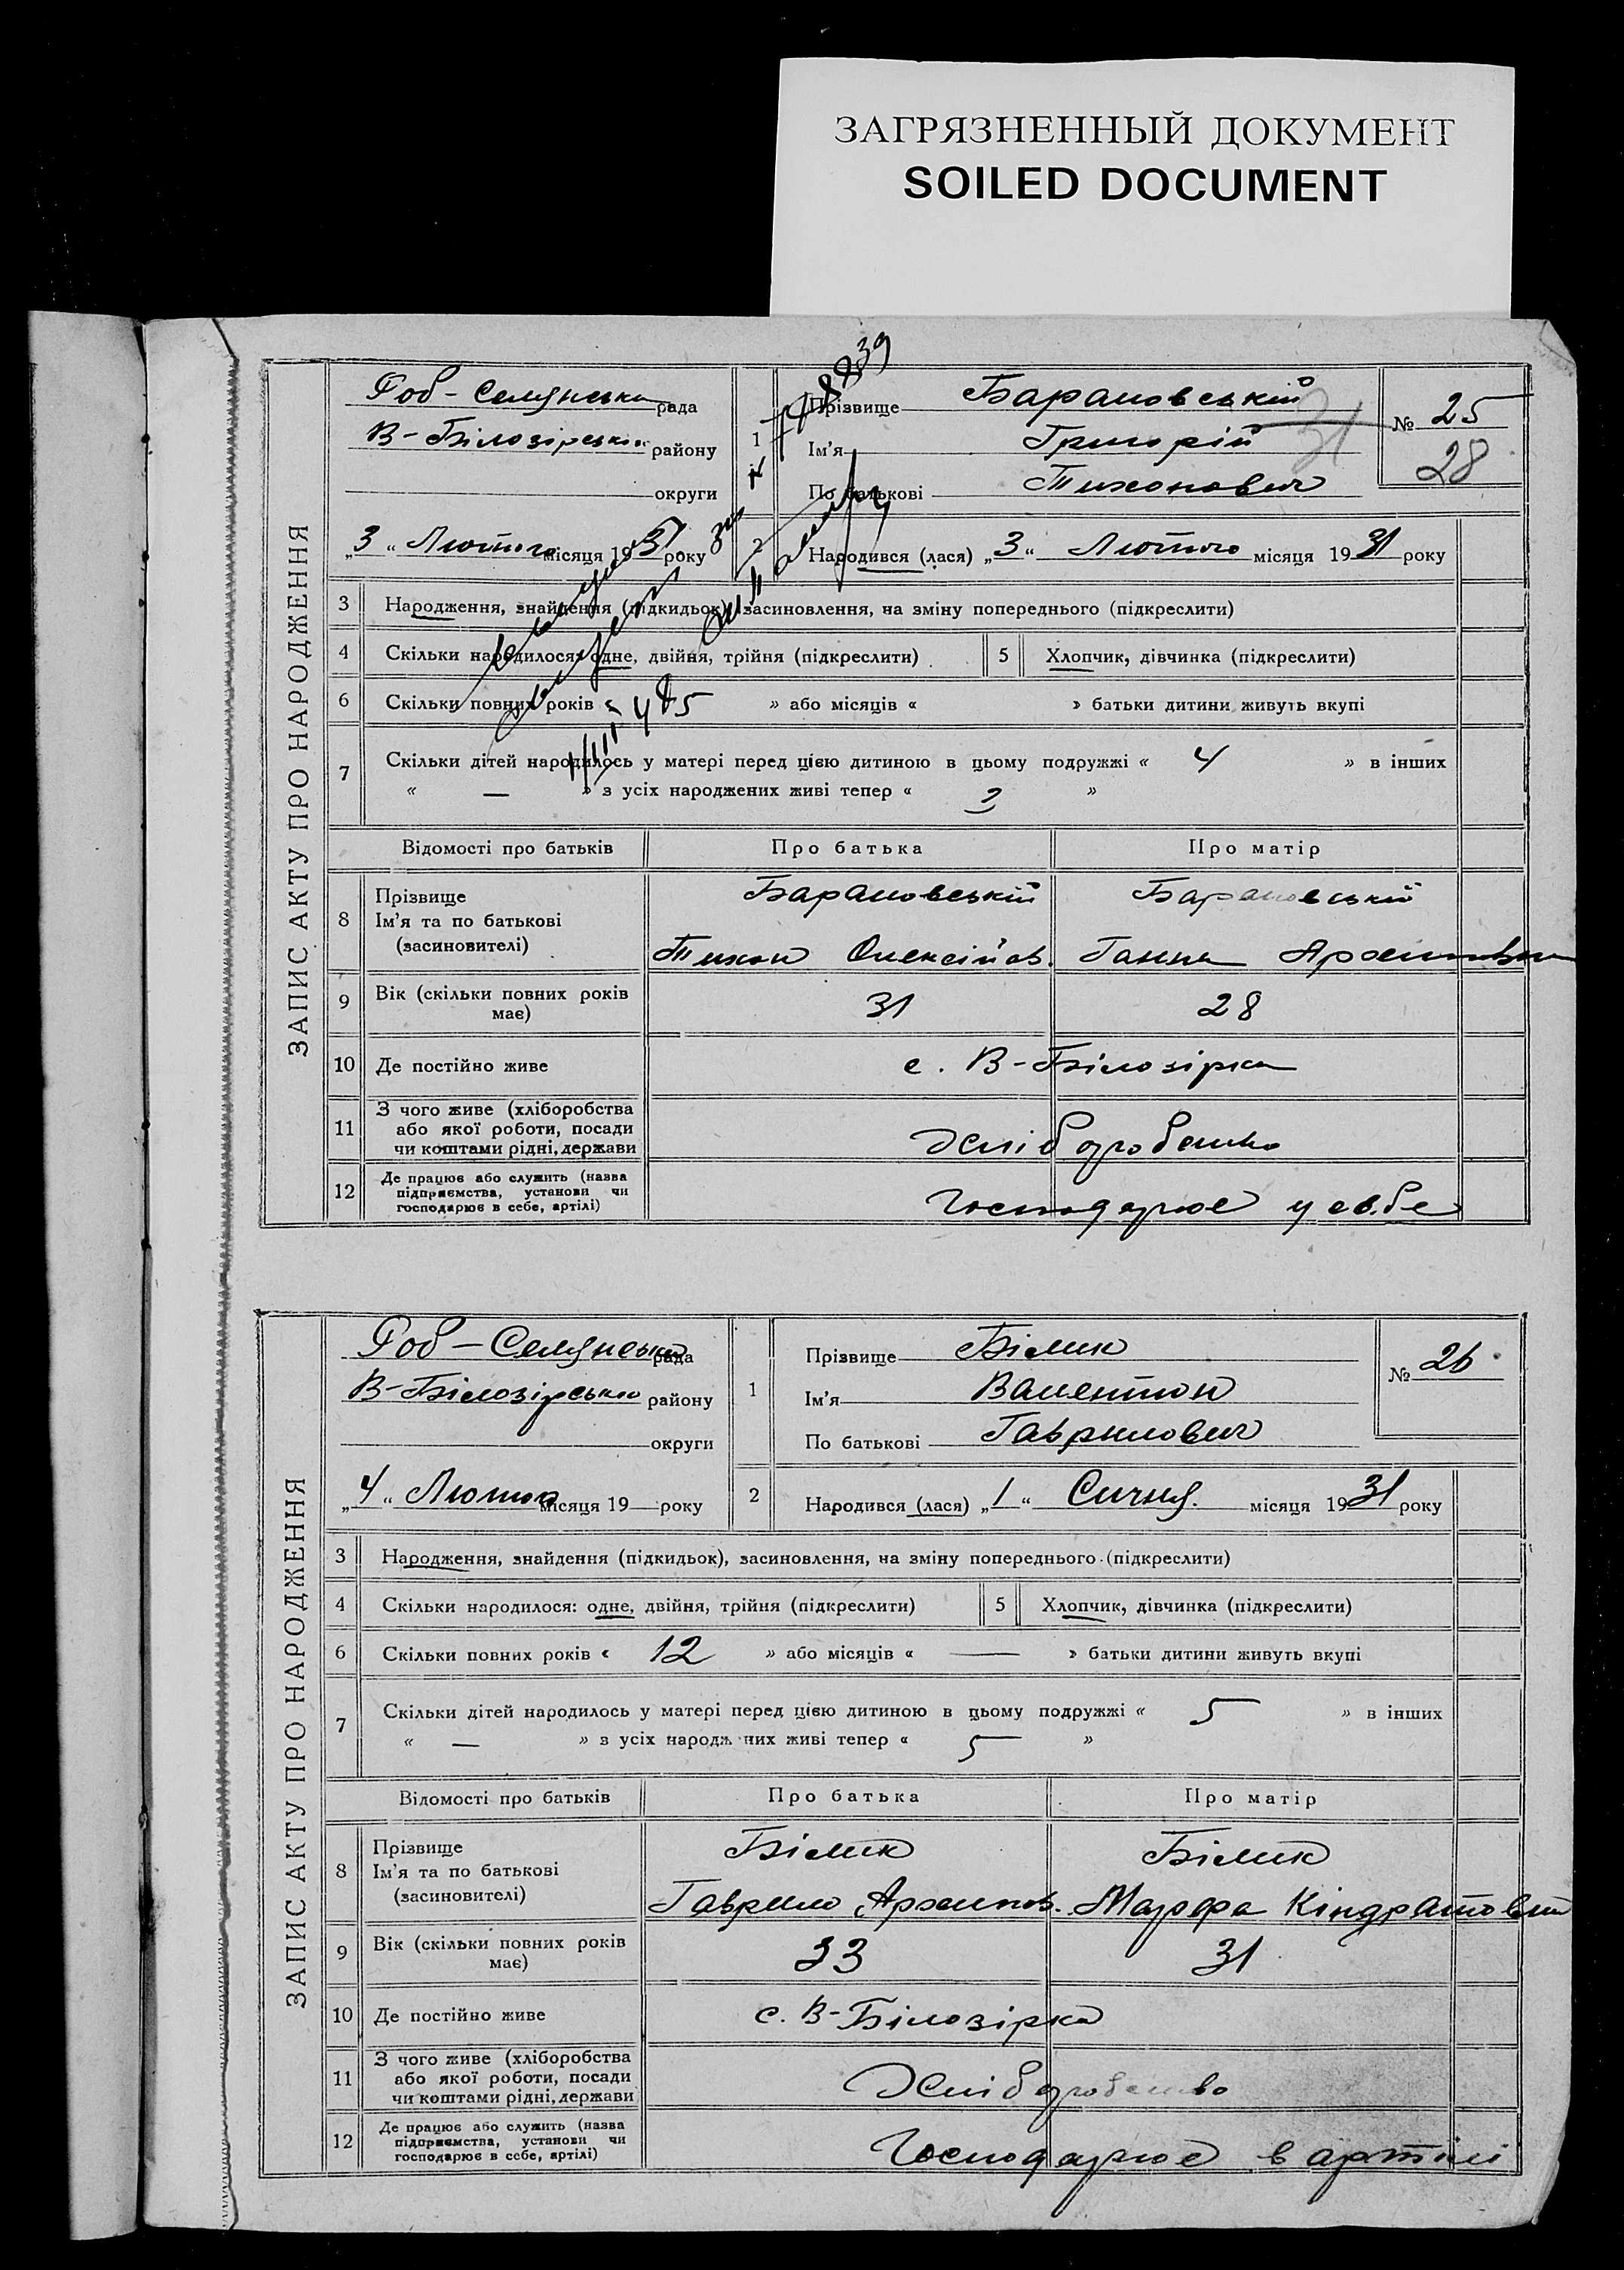 ЗАГРЯЗНЕННЫЙ ДОКУМЕНТ
SOILED DOCUMENT
ЗАПИС АКТУ ПРО НАРОДЖЕННЯ
Роб-Селянська рада
В-Білозірського району
округи
„3“ Лютого місяця 1931 року
1
Прізвище Барановський
Ім'я Григорій
По батькові Тихонович
№ 25
28
31
2
Народився (лася) „3“ Лютого місяця 1931 року
3 Народження, знайдення (підкидьок), засиновлення, на зміну попереднього (підкреслити)
4 Скільки народилося: одне, двійня, трійня (підкреслити)
5 Хлопчик, дівчинка (підкреслити)
6 Скільки повних років « » або місяців « » батьки дитини живуть вкупі
7 Скільки дітей народилось у матері перед цією дитиною в цьому подружжі « 4 » в інших
« — » з усіх народжених живі тепер « 3 »
Відомості про батьків Про батька Про матір
8 Прізвище Барановський Барановській
Ім'я та по батькові
(засиновителі) Тихон Олексійов. Ганна Архиповна
9 Вік (скільки повних років має) 31 28
10 Де постійно живе с. В-Білозірка
11 З чого живе (хліборобства
або якої роботи, посади
чи коштами рідні, держави Хліборобство
12 Де працює або служить (назва
підприємства, установи чи
господарює в себе, артілі) Господарює у себе
ЗАПИС АКТУ ПРО НАРОДЖЕННЯ
Роб-Селянська рада
В-Білозірського району
округи
„4“ Лютого місяця 19 року
1
Прізвище Білик
Ім'я Валентин
По батькові Гаврилович
№ 26
2
Народився (лася) „1“ Січня місяця 1931 року
3 Народження, знайдення (підкидьок), засиновлення, на зміну попереднього (підкреслити)
4 Скільки народилося: одне, двійня, трійня (підкреслити)
5 Хлопчик, дівчинка (підкреслити)
6 Скільки повних років « 12 » або місяців « — » батьки дитини живуть вкупі
7 Скільки дітей народилось у матері перед цією дитиною в цьому подружжі « 5 » в інших
« — » з усіх народжених живі тепер « 5 »
Відомості про батьків Про батька Про матір
8 Прізвище Білик Білик
Ім'я та по батькові
(засиновителі) Гаврило Архипов. Марфа Кіндратовна
9 Вік (скільки повних років має) 33 31
10 Де постійно живе с. В-Білозірка
11 З чого живе (хліборобства
або якої роботи, посади
чи коштами рідні, держави Хліборобство
12 Де працює або служить (назва
підприємства, установи чи
господарює в себе, артілі) Господарює в артілі